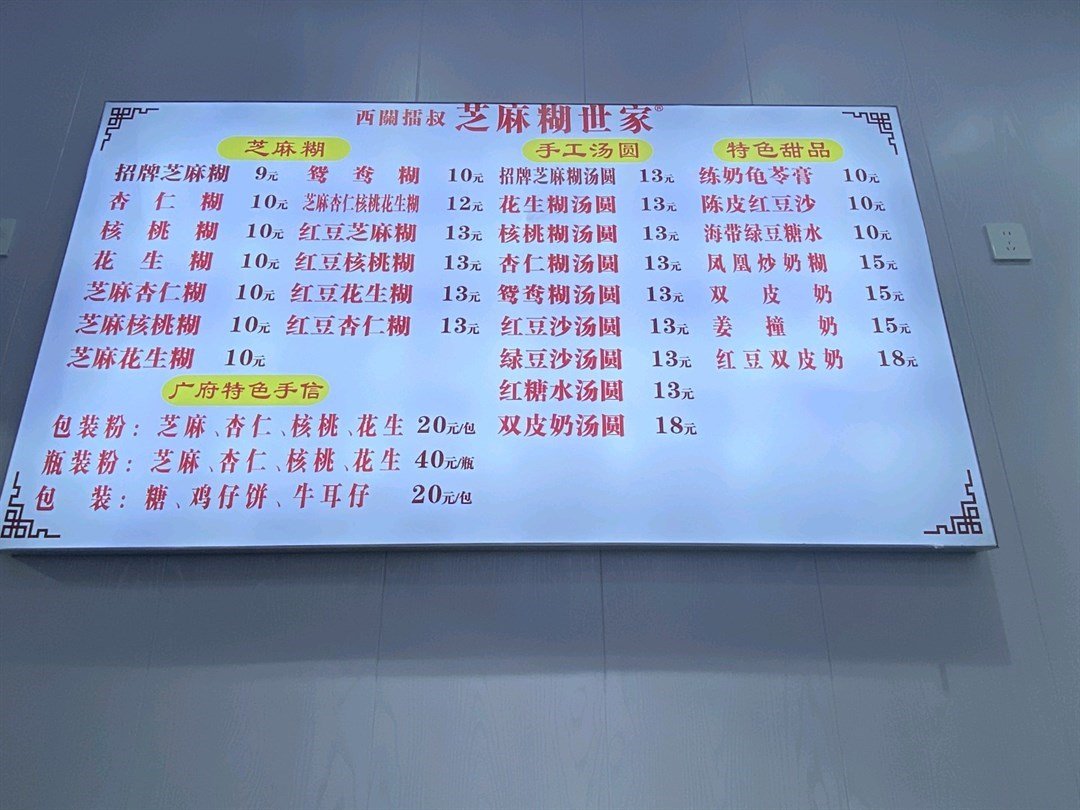 西關擂叔 芝麻糊世家®
芝麻糊
招牌芝麻糊 9元 鸳鸯糊 10元
杏仁糊 10元 芝麻杏仁核桃花生糊 12元
核桃糊 10元 红豆芝麻糊 13元
花生糊 10元 红豆核桃糊 13元
芝麻杏仁糊 10元 红豆花生糊 13元
芝麻核桃糊 10元 红豆杏仁糊 13元
芝麻花生糊 10元
广府特色手信
包装粉：芝麻、杏仁、核桃、花生 20元/包
瓶装粉：芝麻、杏仁、核桃、花生 40元/瓶
包装：糖、鸡仔饼、牛耳仔 20元/包
手工汤圆
招牌芝麻糊汤圆 13元
花生糊汤圆 13元
核桃糊汤圆 13元
杏仁糊汤圆 13元
鸳鸯糊汤圆 13元
红豆沙汤圆 13元
绿豆沙汤圆 13元
红糖水汤圆 13元
双皮奶汤圆 18元
特色甜品
练奶龟苓膏 10元
陈皮红豆沙 10元
海带绿豆糖水 10元
凤凰炒奶糊 15元
双皮奶 15元
姜撞奶 15元
红豆双皮奶 18元